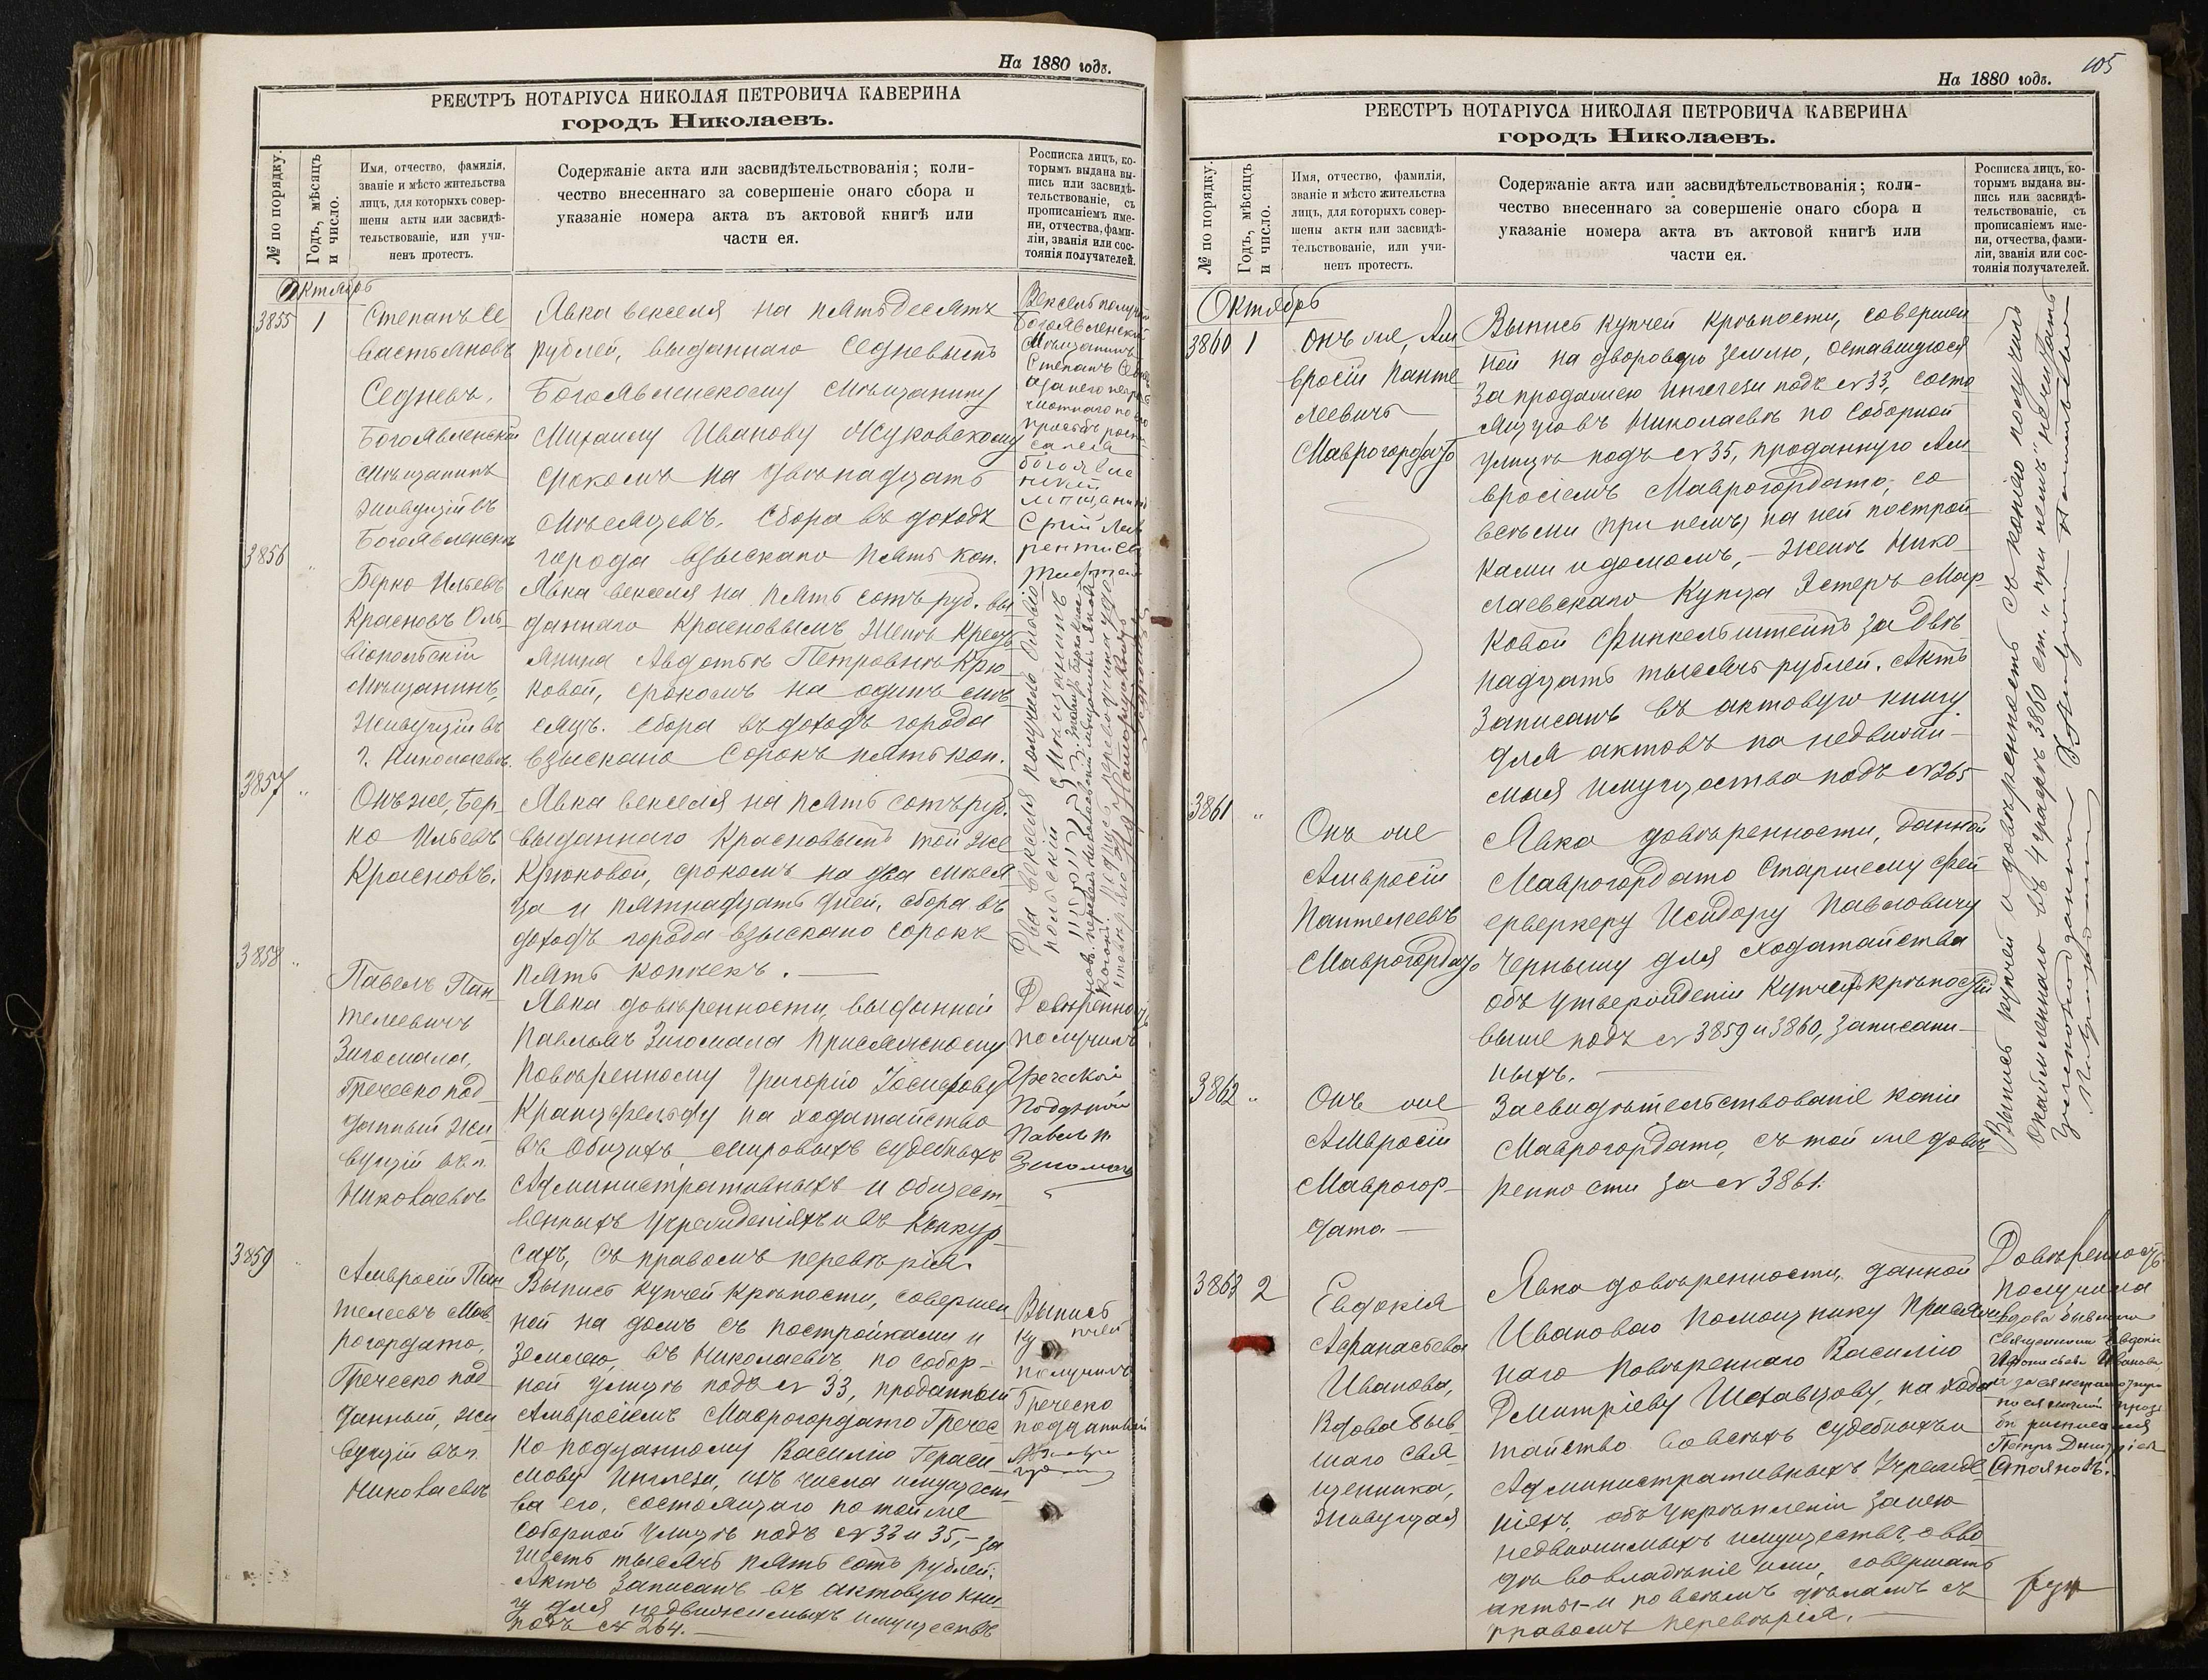 На 1880 годъ.
РЕЕСТРЪ НОТАРІУСА НИКОЛАЯ ПЕТРОВИЧА КАВЕРИНА
городъ Николаевъ.
№ по порядку.
Годъ, мѣсяцъ
и число.
Имя, отчество, фамилія,
званіе и мѣсто жительства
лицъ, для которыхъ совер-
шены акты или засвидѣ-
тельствованіе, или учи-
ненъ протестъ.
Содержаніе акта или засвидѣтельствованія; коли-
чество внесеннаго за совершеніе онаго сбора и
указаніе номера акта въ актовой книгѣ или
части ея.
Росписка лицъ, ко-
торымъ выдана вы-
пись или засвидѣ-
тельствованіе, съ
прописаніемъ име-
ни, отчества, фами-
ліи, званія или сос-
тоянія получателей.
Октябрь
3855
1
Степанъ Се
вастьяновъ
Седневъ,
Богоявленскій
мѣщанинъ
живущій въ
Богоявленскѣ
Явка векселя на пятьдесятъ
рублей, выданнаго Седневымъ
Богоявленскому мѣщанину
Михаилу Иванову Жуковскому
срокомъ на двѣнадцать
мѣсяцевъ. Сбора въ доходъ
города взыскано пять коп.
Вексель получилъ
Богоявленскій
мѣщанинъ
Степанъ
3856
Берко Ильевъ
Красновъ Оль-
віопольскій
мѣщанинъ,
живущій въ
г. Николаевѣ.
Явка векселя на пять сотъ руб. вы
даннаго Красновымъ женѣ крест
янина Авдотьѣ Петровнѣ Крю-
ковой, срокомъ на одинъ мѣ
сяцъ. Сбора въ доходъ города
взыскано сорокъ пять коп.
3857
Онъ же, Бер-
ко Ильевъ
Красновъ.
Явка векселя на пять сотъ руб.
выданнаго Красновымъ той же
Крюковой, срокомъ на два мѣся
ца и пятнадцать дней, сбора въ
доходъ города взыскано сорокъ
пять копѣекъ.
Два векселя получилъ Ольвіо
польскій мѣщанинъ
3858
Павелъ Пан-
телеевичъ
Зигомала,
Греческо под
данный жи-
вущій въ г.
Николаевѣ
Явка довѣренности, выданной
Павломъ Зигомала присяжному
повѣренному Григорію Іосифову
Кранцфельду на ходатайство
въ общихъ, мировыхъ судебныхъ
административныхъ и общест
венныхъ учрежденіяхъ и въ конкур
сахъ, съ правомъ перевѣрія.
Довѣренность
получилъ
Греческой
Подданой
Павелъ П.
Зигомала
3859
Амвросій Пан
телеевъ Мав
рогордато,
Греческо под
данный, жи
вущій въ г.
Николаевѣ
Выпись купчей крѣпости, совершен
ной на домъ съ постройками и
землею, въ Николаевѣ, по Собор-
ной улицѣ подъ № 33, проданный
Амвросіемъ Маврогордато Гречес
ко подданному Василію Гераси
мову Инглези, изъ числа имущест-
ва его, состоящаго по той же
Соборной улицѣ подъ № 33 и 35,- за
шесть тысячъ пять сотъ рублей.
Актъ записанъ въ актовую кни-
гу для недвижимыхъ имуществъ
подъ № 264.
Выпись
купчей
получилъ
Греческо
подданный
На 1880 годъ.
105
РЕЕСТРЪ НОТАРІУСА НИКОЛАЯ ПЕТРОВИЧА КАВЕРИНА
городъ Николаевъ.
№ по порядку.
Годъ, мѣсяцъ
и число.
Имя, отчество, фамилія,
званіе и мѣсто жительства
лицъ, для которыхъ совер-
шены акты или засвидѣ-
тельствованіе, или учи-
ненъ протестъ.
Содержаніе акта или засвидѣтельствованія; коли-
чество внесеннаго за совершеніе онаго сбора и
указаніе номера акта въ актовой книгѣ или
части ея.
Росписка лицъ, ко-
торымъ выдана вы-
пись или засвидѣ-
тельствованіе, съ
прописаніемъ име-
ни, отчества, фами-
ліи, званія или сос-
тоянія получателей.
Октябрь
3860
1
Онъ же, Ам
вросій Панте
леевичъ
Маврогордато
Выпись купчей крѣпости, совершен
ной на дворовую землю, оставшуюся
за продажею Инглези подъ № 33, состо
ящую въ Николаевѣ по Соборной
улицѣ подъ № 35, проданную Ам
вросіемъ Маврогордато, со
всѣми (при немъ) на ней построй-
ками и домомъ, - женѣ Нико-
лаевскаго купца Эстеръ Мар-
ковой Финкельштейнъ за двѣ
надцать тысячъ рублей. Актъ
записанъ въ актовую книгу
для актовъ на недвижи-
мыя имущества подъ № 265
Выпись купчей и довѣренность съ копіею получилъ
Окаймленнаго въ 4 графѣ 3860 ст. "при немъ" не читать
3861
Онъ же
Амвросій
Пантелеевъ
Маврогордато
Явка довѣренности, данной
Маврогордато старшему фей
ерверкеру Исидору Павловичу
Чернышу для ходатайства
объ утвержденіи купчихъ крѣпостей
выше подъ № 3859 и 3860, записан-
ныхъ.
3862
Онъ же
Амвросій
Маврогор-
дато.
Засвидѣтельствованіе копіи
Маврогордато, съ той же довѣ
ренности за № 3861.
3863
2
Евдокія
Афанасьева
Иванова,
вдова быв
шаго свя-
щенника,
живущая
Явка довѣренности, данной
Ивановою помощнику присяж
наго повѣреннаго Василію
Дмитріеву Шехавцову, на хода
тайство во всѣхъ судебныхъ и
административныхъ учрежде
ніяхъ, объ укрѣпленіи за нею
недвижимыхъ имуществъ, о вво
дѣ во владѣніе ими, совершать
акты и по всѣмъ дѣламъ съ
правомъ перевѣрія.
Довѣренность
получила
вдова бывшаго
священника Евдокія
Афанасьева Иванова
Петръ Дмитріевъ
Стояновъ.